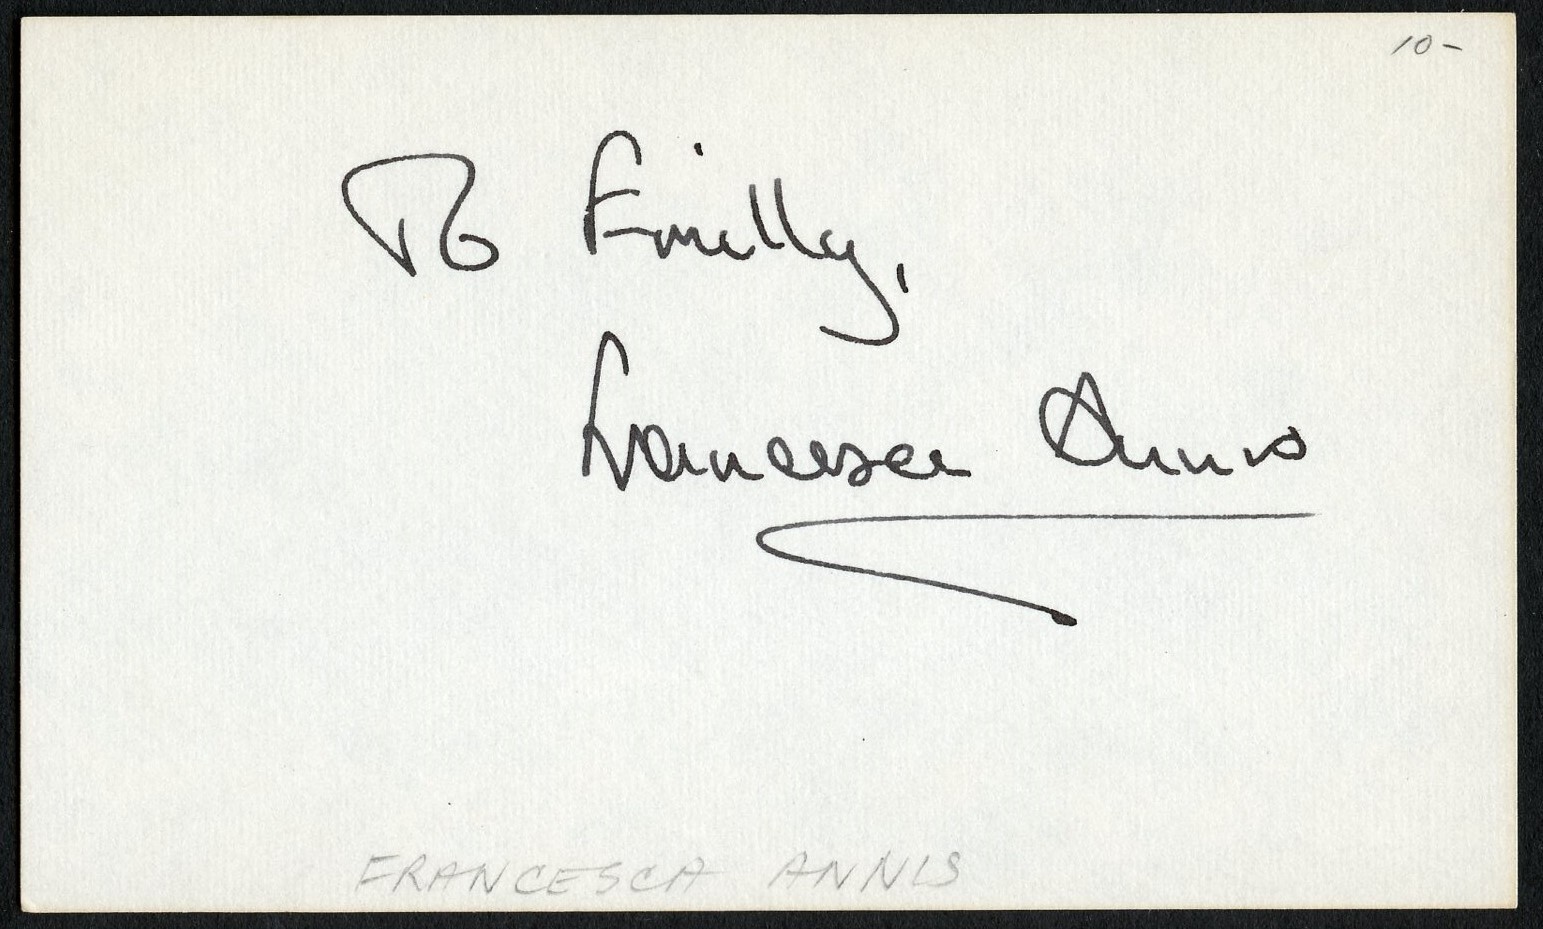 10-
To Emilly,
Francesca Annis
FRANCESCA ANNIS